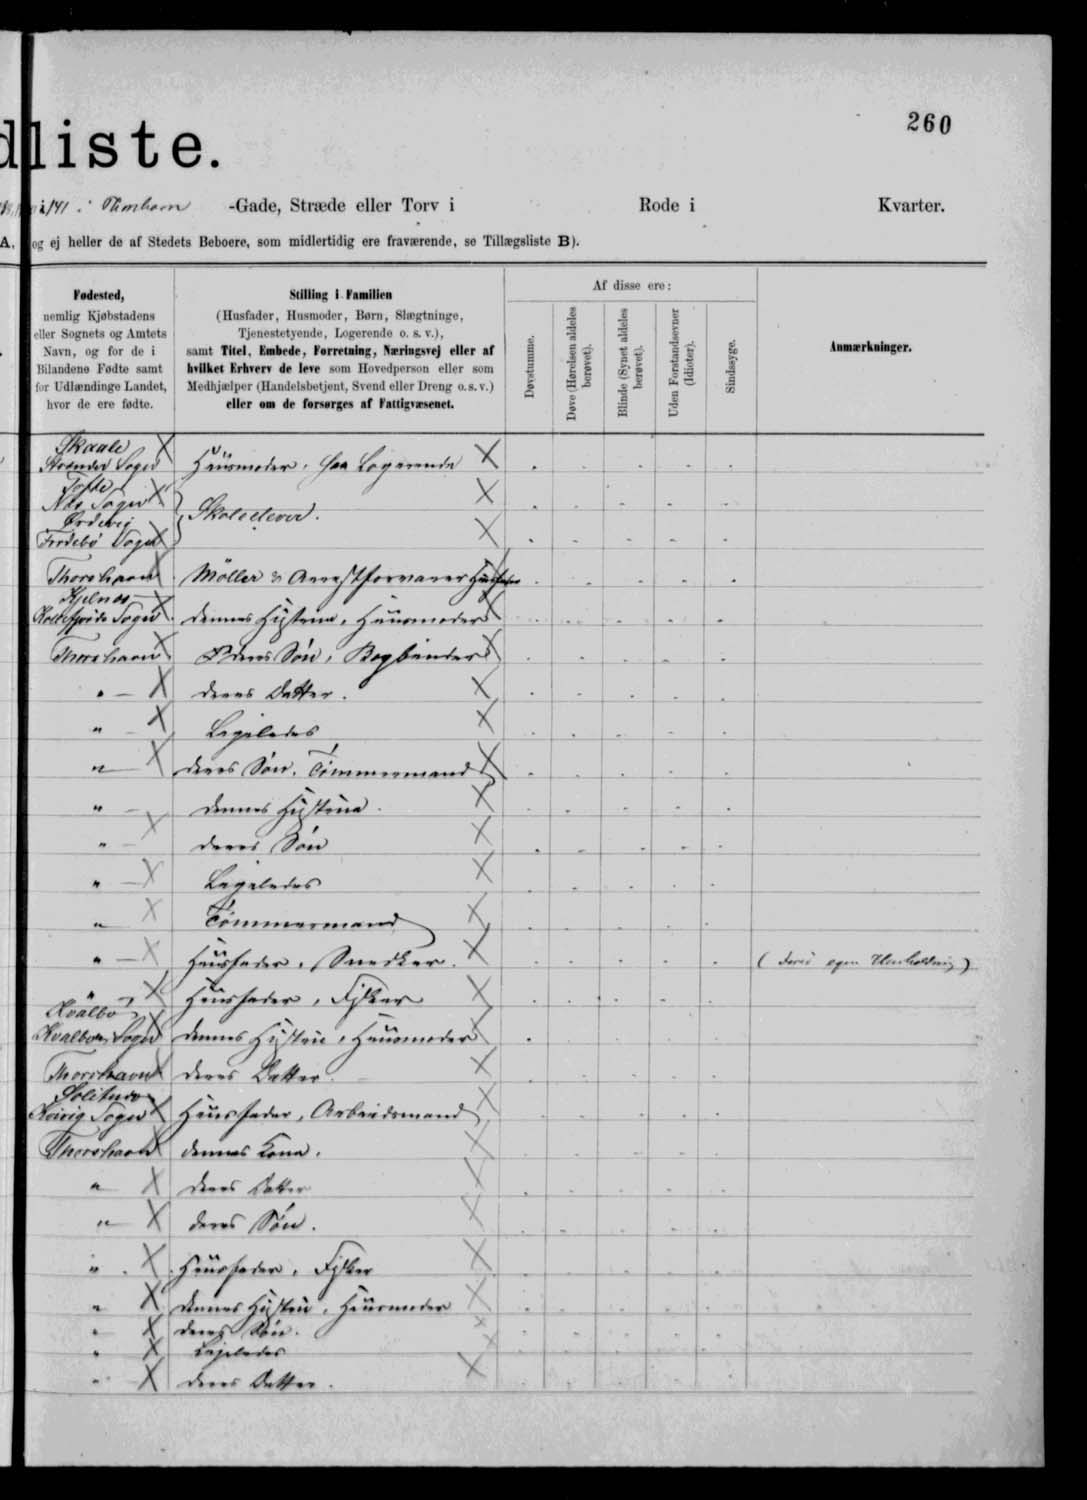 dliste.
260
141 i Thorshavn -Gade, Stræde eller Torv i Rode i Kvarter.
A, og ej heller de af Stedets Beboere, som midlertidig ere fraværende, se Tillægsliste B).
Fødested,
nemlig Kjøbstadens
eller Sognets og Amtets
Navn, og for de i
Bilandene Fødte samt
for Udlændinge Landet,
hvor de ere fødte.
Stilling i Familien
(Husfader, Husmoder, Børn, Slægtninge,
Tjenestetyende, Logerende o. s. v.),
samt Titel, Embede, Forretning, Næringsvej eller af
hvilket Erhverv de leve som Hovedperson eller som
Medhjælper (Handelsbetjent, Svend eller Dreng o. s. v.)
eller om de forsørges af Fattigvæsenet.
Af disse ere:
Døvstumme.
Døve (Hørelsen aldeles
berøvet).
Blinde (Synet aldeles
berøvet).
Uden Forstandsevner
(Idioter).
Sindssyge.
Anmærkninger.
Skaale
Strender Sogn Huusmoder. Logerende
Tofte
Næs Sogn
Skoleelever.
Ørdevig
Frodebø Sogn
Thorshavn Möller & Arrestforvarer Huusfader
Kjelnæs
Kollefjords Sogn dennes Hustrue, Huusmoder
Thorshavn deres Søn, Bogbinder
" — deres Datter.
" — Ligeledes
" — deres Søn. Tømmermand
" — dennes Hustrue.
" — deres Søn
" — Ligeledes
" — Tømmermand
" — Huusfader, Snedker. (deres egen Huusholdning)
" — Huusfader, Fisker
Kvalbø
Kvalbø Sogn dennes Hustrue, Huusmoder
Thorshavn deres Datter.
Solitude
Kvivig Sogn Huusfader, Arbeidsmand
Thorshavn dennes Kone.
" deres Datter
" deres Søn.
" Huusfader, Fisker
" dennes Hustrue, Huusmoder
" deres Søn.
" Ligeledes
" deres Datter.